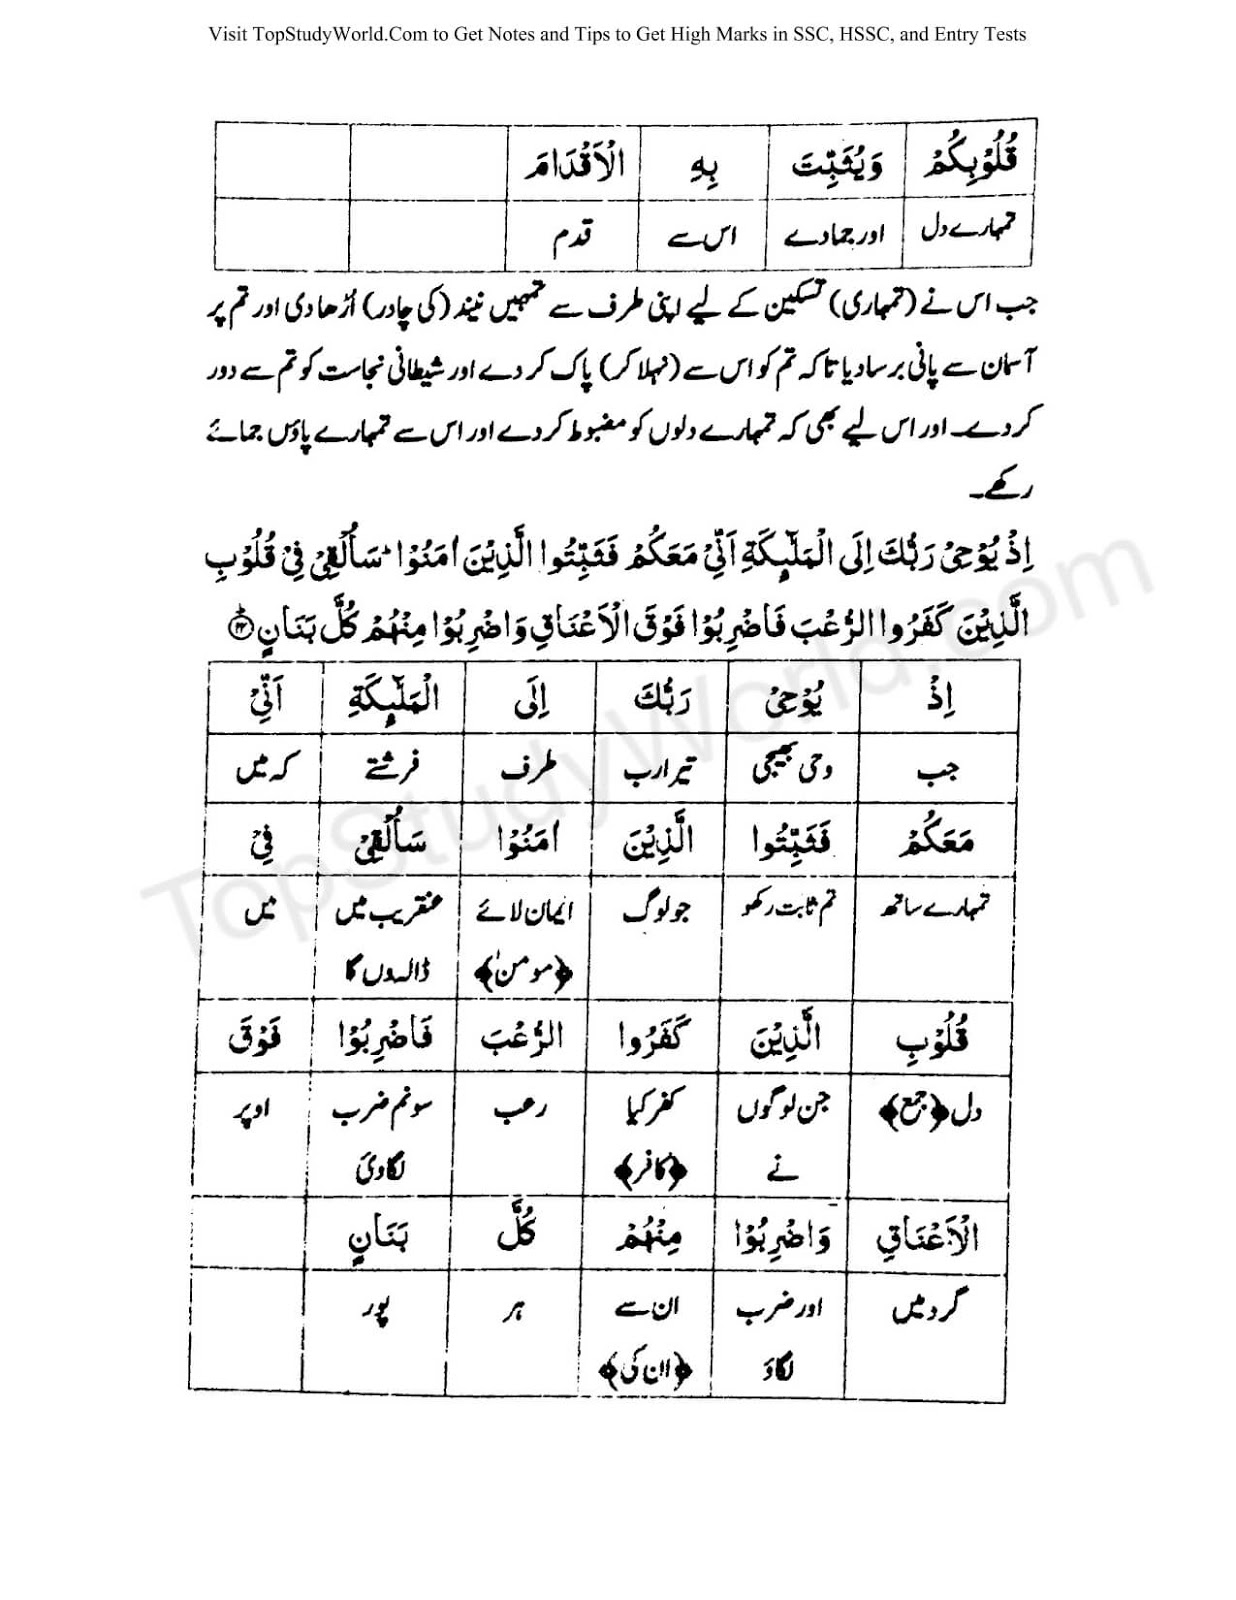 Visit TopStudyWorld.Com to Get Notes and Tips to Get High Marks in SSC, HSSC, and Entry Tests
قُلُوْبِكُمْ وَيُثَبِّتَ بِهِ الْاَقْدَامَ
تمہارے دل اور جمادے اس سے قدم
جب اس نے (تمہاری) تسکین کے لیے اپنی طرف سے تمہیں نیند (کی چادر) اُڑھا دی اور تم پر
آسمان سے پانی برسا دیا تاکہ تم کو اس سے (نہلا کر) پاک کر دے اور شیطانی نجاست کو تم سے دور
کر دے۔ اور اس لیے بھی کہ تمہارے دلوں کو مضبوط کر دے اور اس سے تمہارے پاؤں جمائے
رکھے۔
اِذْ يُوْحِىْ رَبُّكَ اِلَى الْمَلٰٓئِكَةِ اَنِّىْ مَعَكُمْ فَثَبِّتُوا الَّذِيْنَ اٰمَنُوْا ؕ سَاُلْقِىْ فِىْ قُلُوْبِ
الَّذِيْنَ كَفَرُوا الرُّعْبَ فَاضْرِبُوْا فَوْقَ الْاَعْنَاقِ وَاضْرِبُوْا مِنْهُمْ كُلَّ بَنَانٍ
اِذْ يُوْحِىْ رَبُّكَ اِلَى الْمَلٰٓئِكَةِ اَنِّىْ
جب وحی بھیجی تیرا رب طرف فرشتے کہ میں
مَعَكُمْ فَثَبِّتُوا الَّذِيْنَ اٰمَنُوْا سَاُلْقِىْ فِىْ
تمہارے ساتھ تم ثابت رکھو جو لوگ ایمان لائے عنقریب میں میں
﴿مومن﴾ ڈالدوں گا
قُلُوْبِ الَّذِيْنَ كَفَرُوا الرُّعْبَ فَاضْرِبُوْا فَوْقَ
دل ﴿جمع﴾ جن لوگوں کفر کیا رعب سو تم ضرب اوپر
نے ﴿کافر﴾ لگاوئ
الْاَعْنَاقِ وَاضْرِبُوْا مِنْهُمْ كُلَّ بَنَانٍ
گردنیں اور ضرب ان سے ہر پور
لگاؤ ﴿ان کی﴾
TopStudyWorld.com